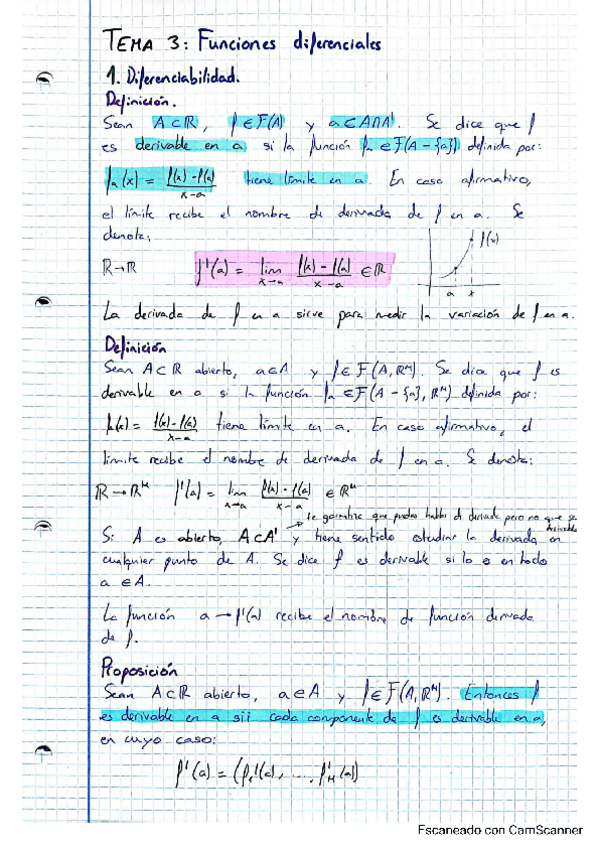 TEMA 3: Funciones diferenciales
1. Diferenciabilidad.
Definición.
Sean A⊂ℝ, f∈F(A) y a∈A∩A'. Se dice que f
es derivable en a si la función fₐ∈F(A-{a}) definida por:
fₐ(x) = (f(x)-f(a))/(x-a) tiene límite en a. En caso afirmativo,
el límite recibe el nombre de derivada de f en a. Se
denota:
ℝ→ℝ f'(a) = lim x→a (f(x)-f(a))/(x-a) ∈ℝ
f(x)
a x
La derivada de f en a sirve para medir la variación de f en a.
Definición
Sean A⊂ℝ abierto, a∈A y f∈F(A,ℝᴹ). Se dice que f es
derivable en a si la función fₐ∈F(A-{a},ℝᴹ) definida por:
fₐ(x) = (f(x)-f(a))/(x-a) tiene límite en a. En caso afirmativo, el
límite recibe el nombre de derivada de f en a. Se denota:
ℝ→ℝᴹ f'(a) = lim x→a (f(x)-f(a))/(x-a) ∈ℝᴹ
te garantiza que puedas hablar de derivada pero no que sea derivable
Si A es abierto, A⊂A' y tiene sentido estudiar la derivada en
cualquier punto de A. Se dice f es derivable si lo es en todo
a∈A.
La función a→f'(a) recibe el nombre de función derivada
de f.
Proposición
Sean A⊂ℝ abierto, a∈A y f∈F(A,ℝᴹ). Entonces f
es derivable en a sii cada componente de f es derivable en a,
en cuyo caso:
f'(a) = (f₁'(a), ..., f'ᴹ(a))
Escaneado con CamScanner